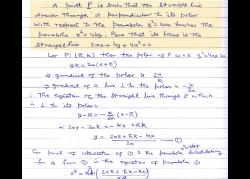 A point P is such that the straight line
drawn through it perpendicular to its polar
with respect to the parabola y²=4ax touches the
parabola x²=4by. Prove that its locus is the
straight line 2ax+by+4a²=0.
Let P(h,k) then the polar of P w.r.t y²=4ax is
yk=2a(x+h)
∴ gradient of the polar is 2a/k
∴ gradient of a line ⊥ to the polar is -k/2a
∴ The equation of the straight line through P which
is ⊥ to its polar is
y-k=-k/2a (x-h)
⇒ 2ay-2ak=-kx+hk
y = 2ak+hk-kx / 2a ①
For point of intersection of ① & the parabola, substituting
for y from ① in the equation of parabola ⇒
x²=4b(2ak+hk-kx / 2a)